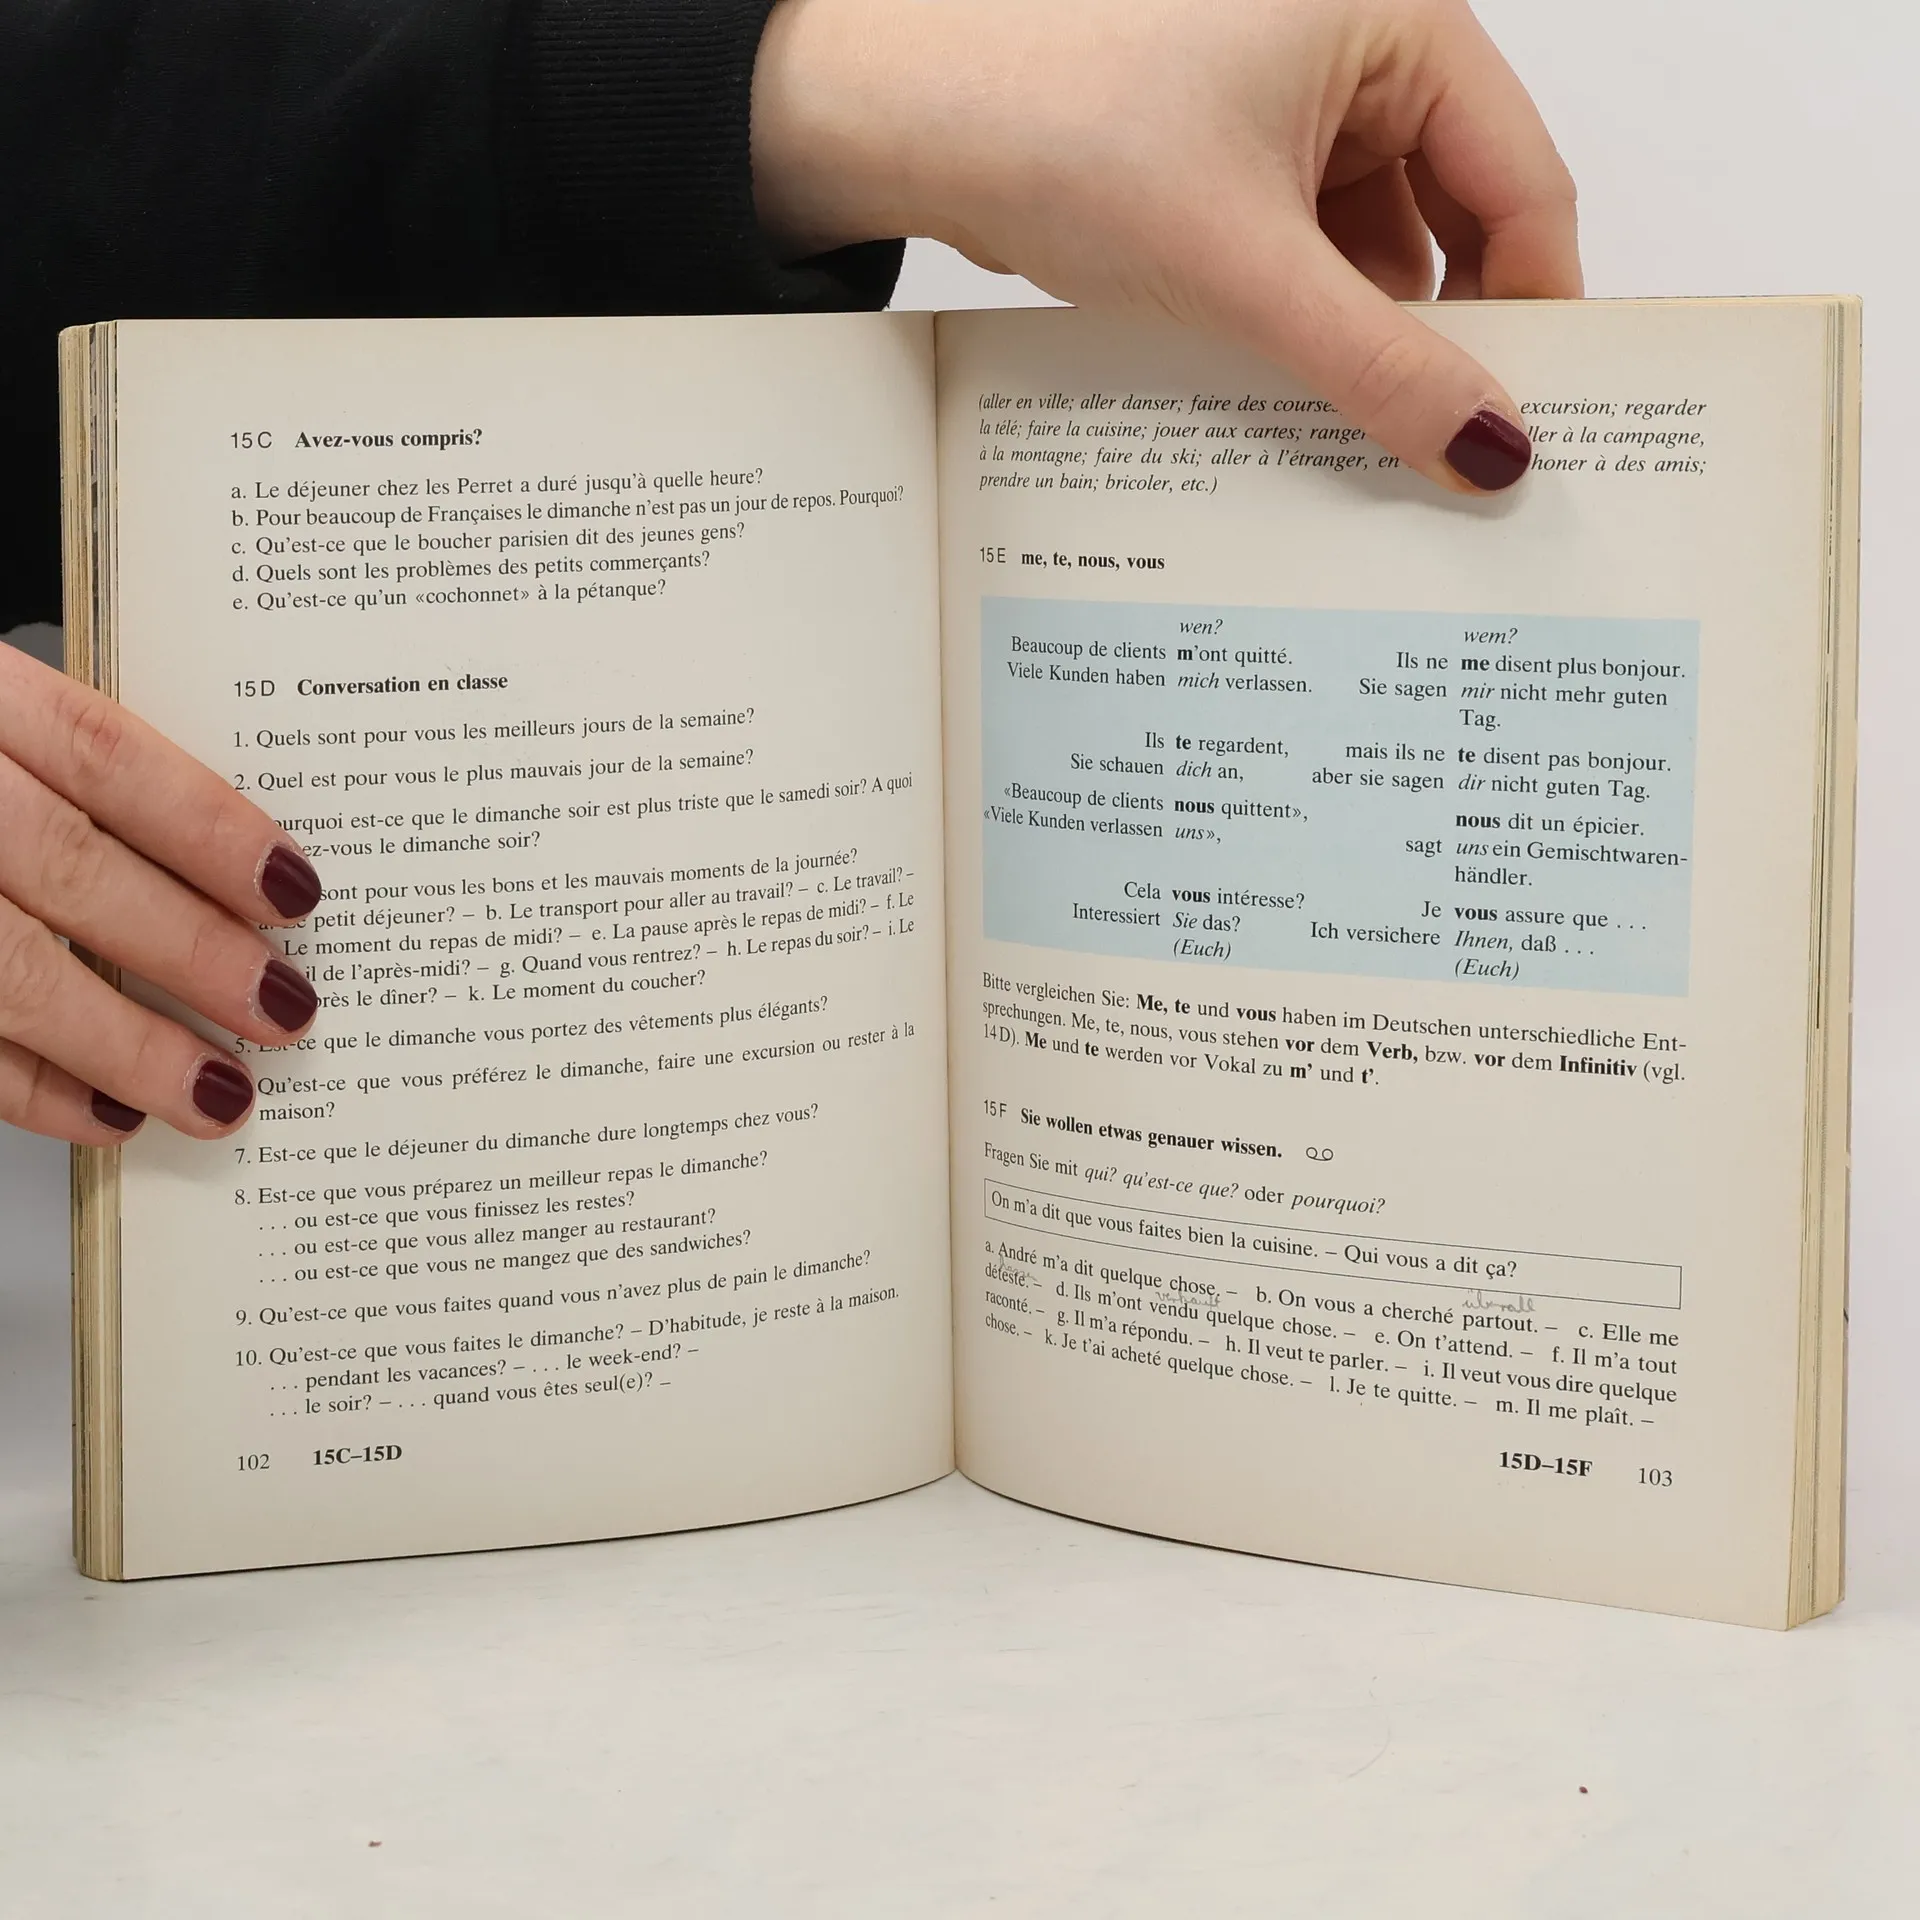 15 C Avez-vous compris?
a. Le déjeuner chez les Perret a duré jusqu'à quelle heure?
b. Pour beaucoup de Françaises le dimanche n'est pas un jour de repos. Pourquoi?
c. Qu'est-ce que le boucher parisien dit des jeunes gens?
d. Quels sont les problèmes des petits commerçants?
e. Qu'est-ce qu'un «cochonnet» à la pétanque?
15 D Conversation en classe
1. Quels sont pour vous les meilleurs jours de la semaine?
2. Quel est pour vous le plus mauvais jour de la semaine?
est-ce que le dimanche soir est plus triste que le samedi soir? A quoi
le dimanche soir?
sont pour vous les bons et les mauvais moments de la journée?
petit déjeuner? – b. Le transport pour aller au travail? – c. Le travail? –
Le moment du repas de midi? – e. La pause après le repas de midi? – f. Le
de l'après-midi? – g. Quand vous rentrez? – h. Le repas du soir? – i. Le
le dîner? – k. Le moment du coucher?
5. que le dimanche vous portez des vêtements plus élégants?
Qu'est-ce que vous préférez le dimanche, faire une excursion ou rester à la
maison?
7. Est-ce que le déjeuner du dimanche dure longtemps chez vous?
8. Est-ce que vous préparez un meilleur repas le dimanche?
. . . ou est-ce que vous finissez les restes?
. . . ou est-ce que vous allez manger au restaurant?
. . . ou est-ce que vous ne mangez que des sandwiches?
9. Qu'est-ce que vous faites quand vous n'avez plus de pain le dimanche?
10. Qu'est-ce que vous faites le dimanche? – D'habitude, je reste à la maison.
. . . pendant les vacances? – . . . le week-end? –
. . . le soir? – . . . quand vous êtes seul(e)? –
102 15C–15D
(aller en ville; aller danser; faire des courses excursion; regarder
la télé; faire la cuisine; jouer aux cartes; ranger à la campagne,
à la montagne; faire du ski; aller à l'étranger, en à des amis;
prendre un bain; bricoler, etc.)
15 E me, te, nous, vous
wen? wem?
Beaucoup de clients m'ont quitté. Ils ne me disent plus bonjour.
Viele Kunden haben mich verlassen. Sie sagen mir nicht mehr guten
Tag.
Ils te regardent, mais ils ne te disent pas bonjour.
Sie schauen dich an, aber sie sagen dir nicht guten Tag.
«Beaucoup de clients nous quittent», nous dit un épicier.
«Viele Kunden verlassen uns», sagt uns ein Gemischtwaren-
händler.
Cela vous intéresse? Je vous assure que . . .
Interessiert Sie das? Ich versichere Ihnen, daß . . .
(Euch) (Euch)
Bitte vergleichen Sie: Me, te und vous haben im Deutschen unterschiedliche Ent-
sprechungen. Me, te, nous, vous stehen vor dem Verb, bzw. vor dem Infinitiv (vgl.
14 D). Me und te werden vor Vokal zu m' und t'.
15 F Sie wollen etwas genauer wissen.
Fragen Sie mit qui? qu'est-ce que? oder pourquoi?
On m'a dit que vous faites bien la cuisine. – Qui vous a dit ça?
a. André m'a dit quelque chose. – b. On vous a cherché partout. – c. Elle me
hassen verkauft überall
déteste. – d. Ils m'ont vendu quelque chose. – e. On t'attend. – f. Il m'a tout
raconté. – g. Il m'a répondu. – h. Il veut te parler. – i. Il veut vous dire quelque
chose. – k. Je t'ai acheté quelque chose. – l. Je te quitte. – m. Il me plaît. –
15D–15F 103